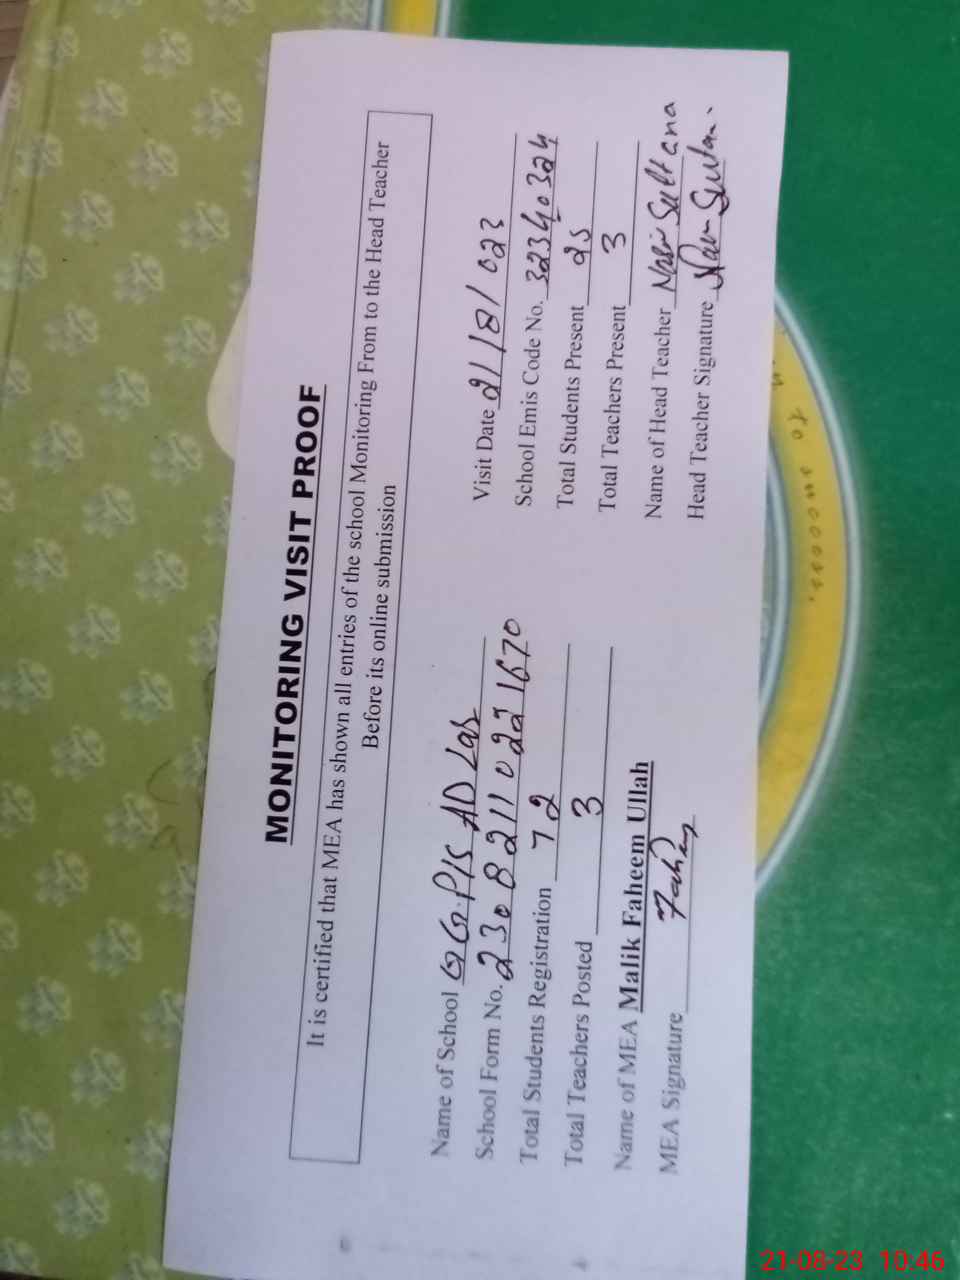 MONITORING VISIT PROOF
It is certified that MEA has shown all entries of the school Monitoring From to the Head Teacher
Before its online submission
Name of School GG.P/S AD Lar
School Form No. 230821102271670
Total Students Registration 72
Total Teachers Posted 3
Name of MEA Malik Faheem Ullah
MEA Signature Fahim
Visit Date 21/8/023
School Emis Code No. 32340324
Total Students Present 25
Total Teachers Present 3
Name of Head Teacher Sultana
Head Teacher Signature
21-08-23 10:46